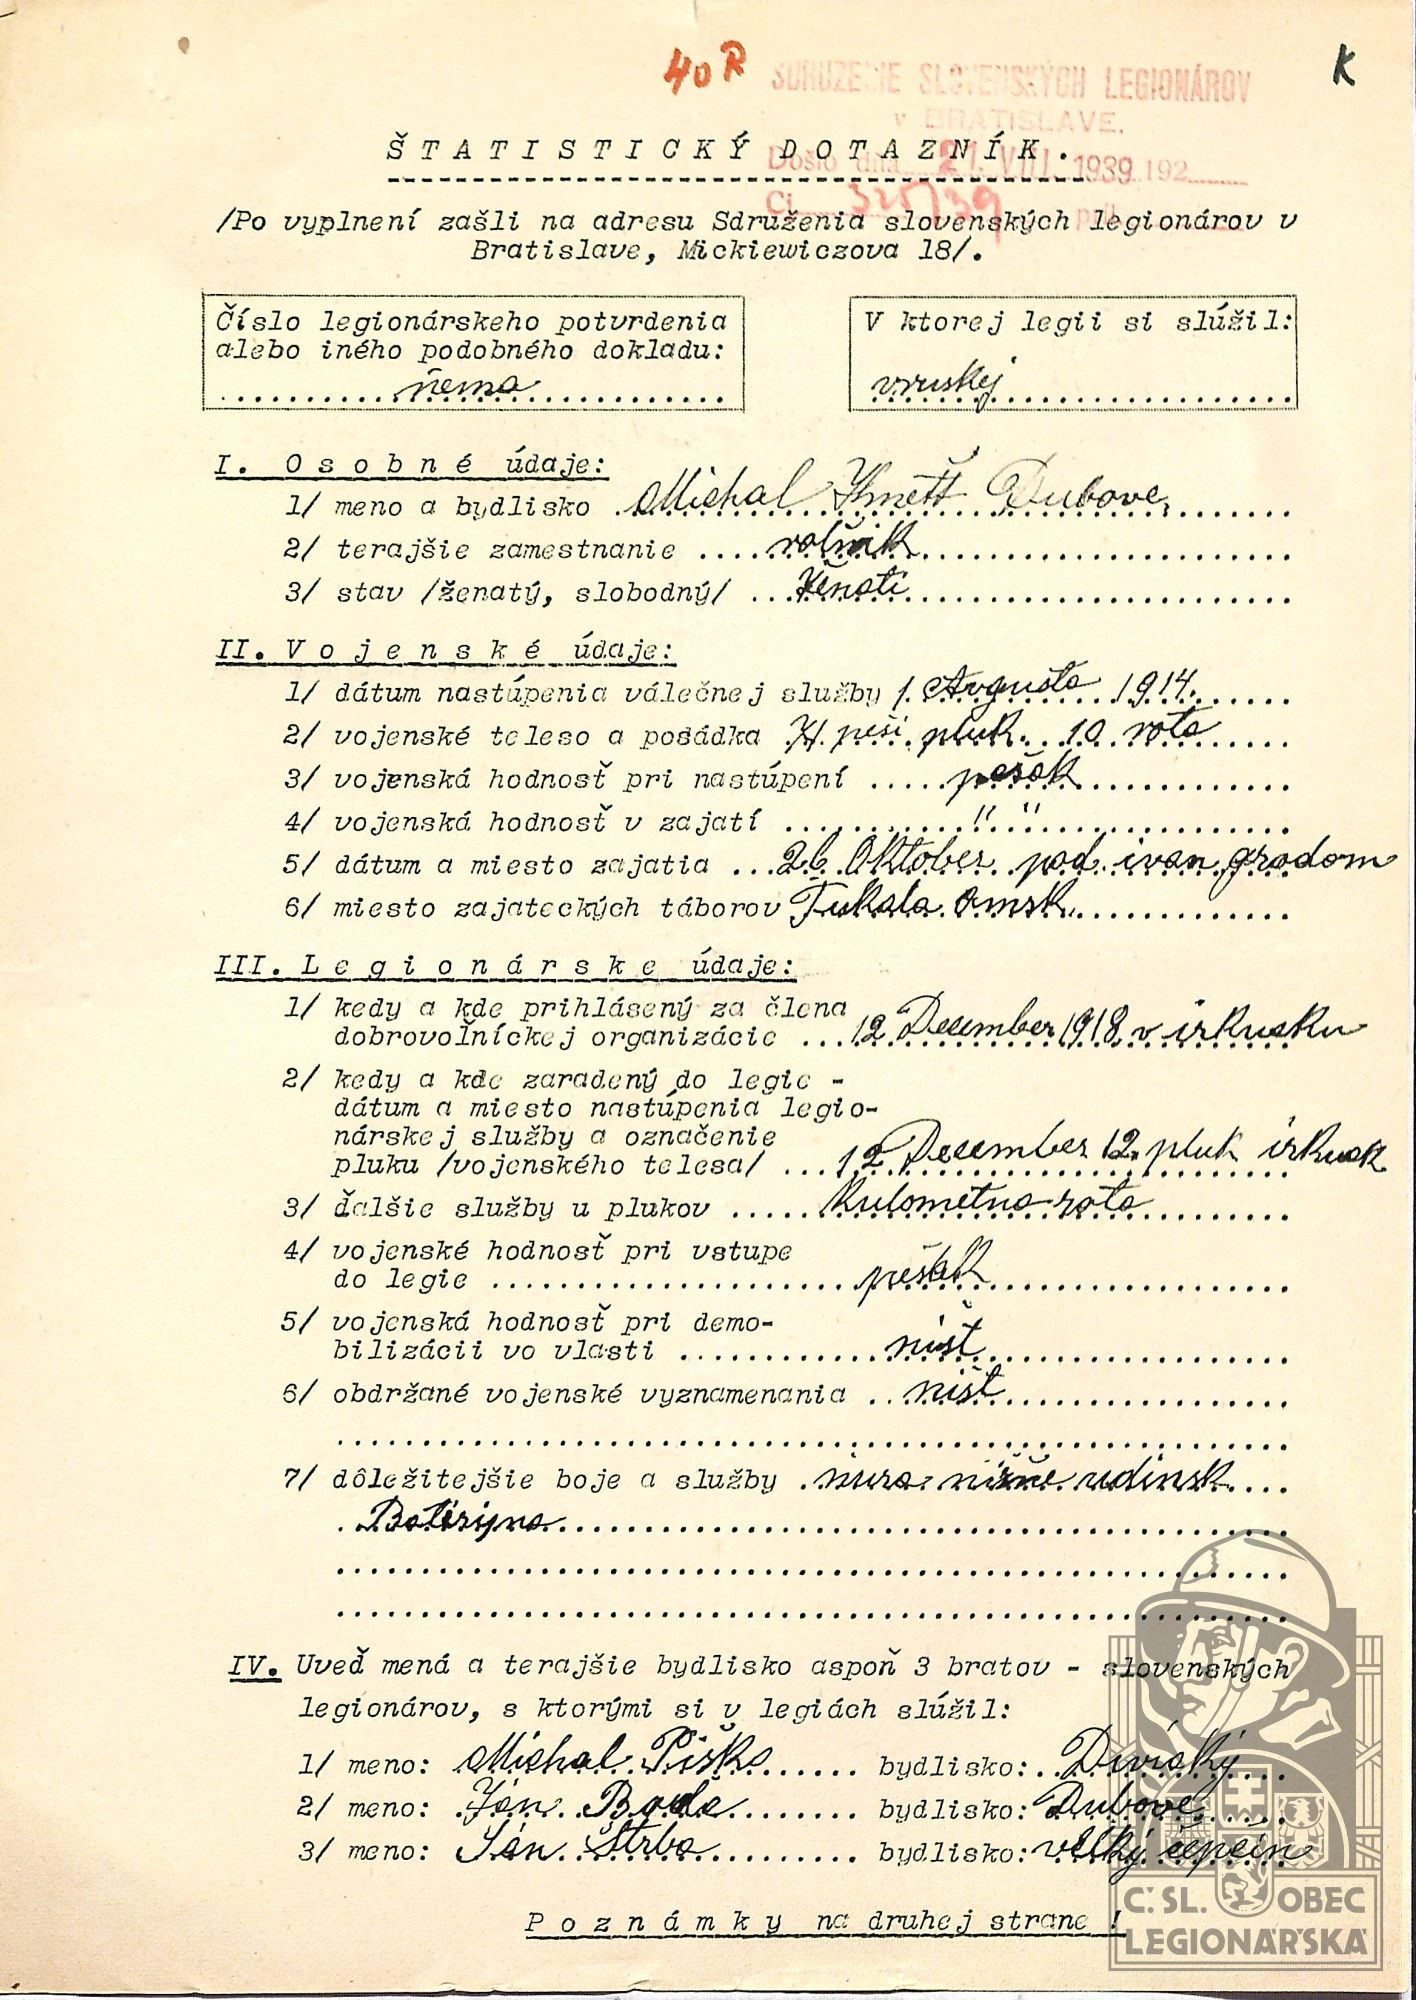 40 R
K
SDRUŽENIE SLOVENSKÝCH LEGIONÁROV
v BRATISLAVE.
Došlo dňa 21. VIII. 1939 192
Čj. 325/39 príl.
ŠTATISTICKÝ DOTAZNÍK.
/Po vyplnení zašli na adresu Sdruženia slovenských legionárov v
Bratislave, Mickiewiczova 18/.
Číslo legionárskeho potvrdenia
alebo iného podobného dokladu:
nema
V ktorej legii si slúžil:
vruskej
I. Osobné údaje:
1/ meno a bydlisko Michal Kmeťt Dubove
2/ terajšie zamestnanie rolník
3/ stav /ženatý, slobodný/ ženati
II. Vojenské údaje:
1/ dátum nastúpenia válečnej služby 1. Avgusta 1914.
2/ vojenské teleso a posádka 71. peši pluk. 10 rota
3/ vojenská hodnosť pri nastúpení pešak
4/ vojenská hodnosť v zajatí " "
5/ dátum a miesto zajatia 26 Oktober pod ivan gradom
6/ miesto zajateckých táborov Tukala omsk
III. Legionárske údaje:
1/ kedy a kde prihlásený za člena
dobrovoľníckej organizácie 12 December 1918 v irkusku
2/ kedy a kde zaradený do legie -
dátum a miesto nastúpenia legio-
nárskej služby a označenie
pluku /vojenského telesa/ 12 December 12. pluk irkusk
3/ ďalšie služby u plukov kulometna rota
4/ vojenské hodnosť pri vstupe
do legie pešak
5/ vojenská hodnosť pri demo-
bilizácii vo vlasti ništ
6/ obdržané vojenské vyznamenania ništ
7/ dôležitejšie boje a služby nižne udinsk
IV. Uveď mená a terajšie bydlisko aspoň 3 bratov - slovenských
legionárov, s ktorými si v legiách slúžil:
1/ meno: Michal Piško bydlisko: Divický
2/ meno: Ján bydlisko: Dubove
3/ meno: Ján Štrba bydlisko: velký čepčín
Poznámky na druhej strane !
Č.SL. OBEC
LEGIONÁŘSKÁ